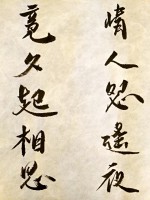 情人怨遙夜
竟夕起相思